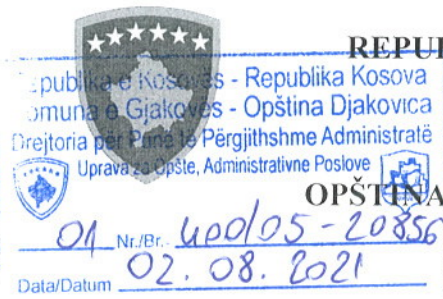 REPU
Republika e Kosovës - Republika Kosova
Komuna e Gjakovës - Opština Djakovica
Drejtoria për Punë të Përgjithshme Administratë
Uprava za Opšte, Administrativne Poslove
OPŠTINA
01 Nr./Br. 400/05-20856
Data/Datum 02. 08. 2021